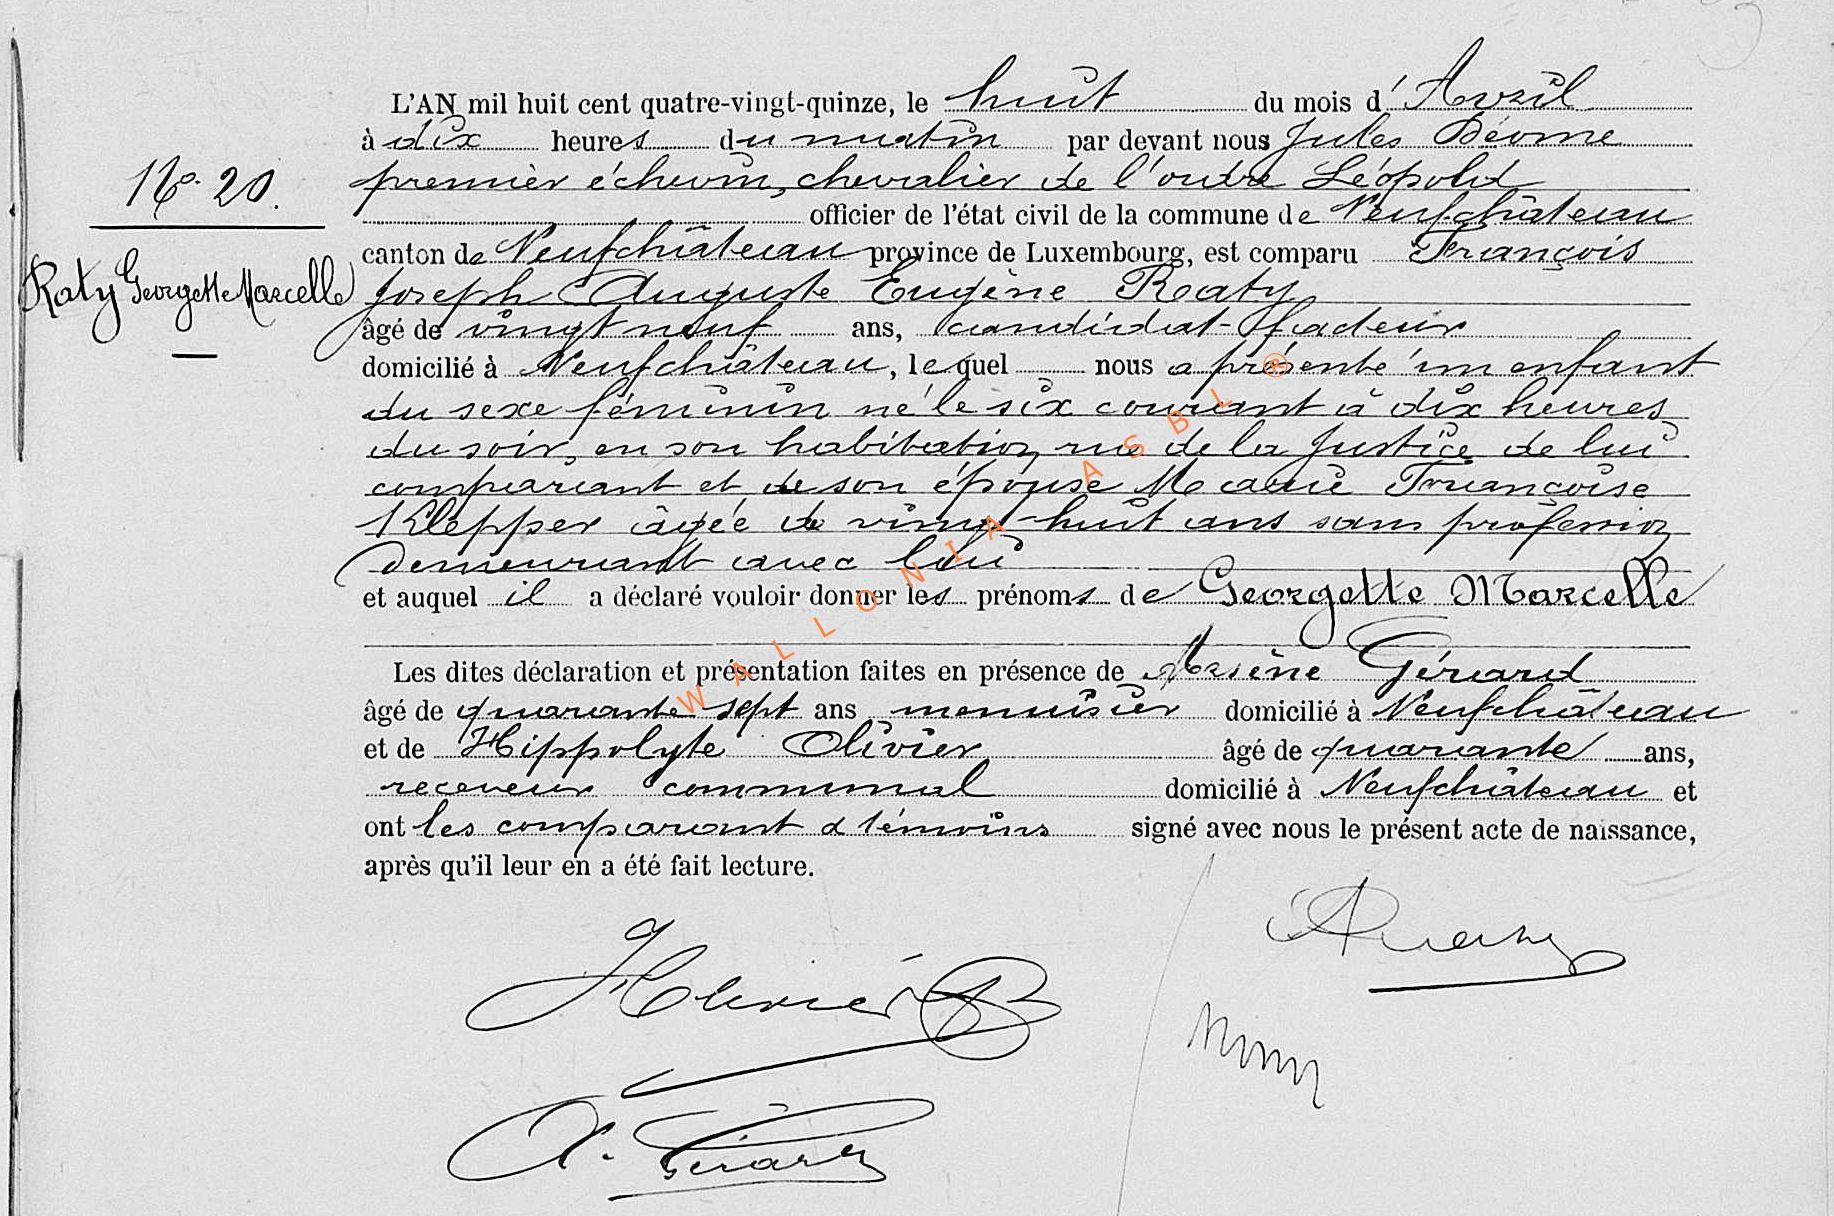 L'AN mil huit cent quatre-vingt-quinze, le huit du mois d'Avril
à dix heures du matin par devant nous Jules Déome
N° 20.
premier échevin, chevalier de l'ordre Léopold
officier de l'état civil de la commune de Neufchâteau
canton de Neufchâteau province de Luxembourg, est comparu François
Raty Georgette Marcelle
Joseph Auguste Eugène Raty
âgé de vingt neuf ans, candidat-facteur
domicilié à Neufchâteau, lequel nous a présenté un enfant
du sexe féminin né le six courant à dix heures
du soir, en son habitation rue de la Justice de lui
comparant et de son épouse Marie Françoise
Klepper âgée de vingt-huit ans sans profession
demeurant avec lui
et auquel il a déclaré vouloir donner les prénoms de Georgette Marcelle
Les dites déclaration et présentation faites en présence de Arsène Gérard
âgé de quarante sept ans menuisier domicilié à Neufchâteau
et de Hippolyte Olivier âgé de quarante ans,
receveur communal domicilié à Neufchâteau et
ont les comparant et témoins signé avec nous le présent acte de naissance,
après qu'il leur en a été fait lecture.
HOlivier
A. Gérard
WALLONIA ASBL ®